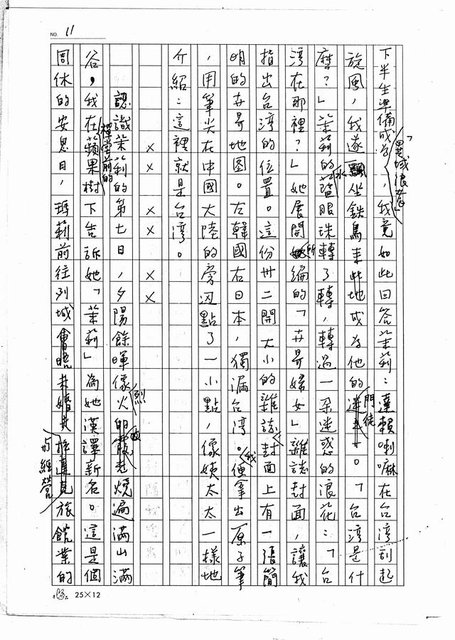 NO. 11
下半生準備成為「異域浪者」，我竟如此回答茉莉：達賴喇嘛在台灣刮起
旋風，我遂飄坐鐵鳥來此地成為他的門徒。「台灣是什
麼？」茉莉的水藍眼珠轉了轉，轉過一朵迷惑的浪花：「台
灣在那裡？」她展開所編的「世界婦女」雜誌封面，讓我
指出台灣的位置。這份卅二開大小的雜誌封面上有一張簡
明的世界地圖。左韓國右日本，獨漏台灣。我便拿出原子筆
，用筆尖在中國大陸的旁邊點了一小點，像姨太太一樣地
介紹：這裡就是台灣。
× × × ×
認識茉莉的第七日，夕陽餘暉像烈火般燒遍滿山滿
谷，我在禪堂前的蘋果樹下告訴她「茉莉」為她漢譯新名。這是個
同休的安息日，瑪莉前往列城會晤未婚夫與經營旅館業的
25×12